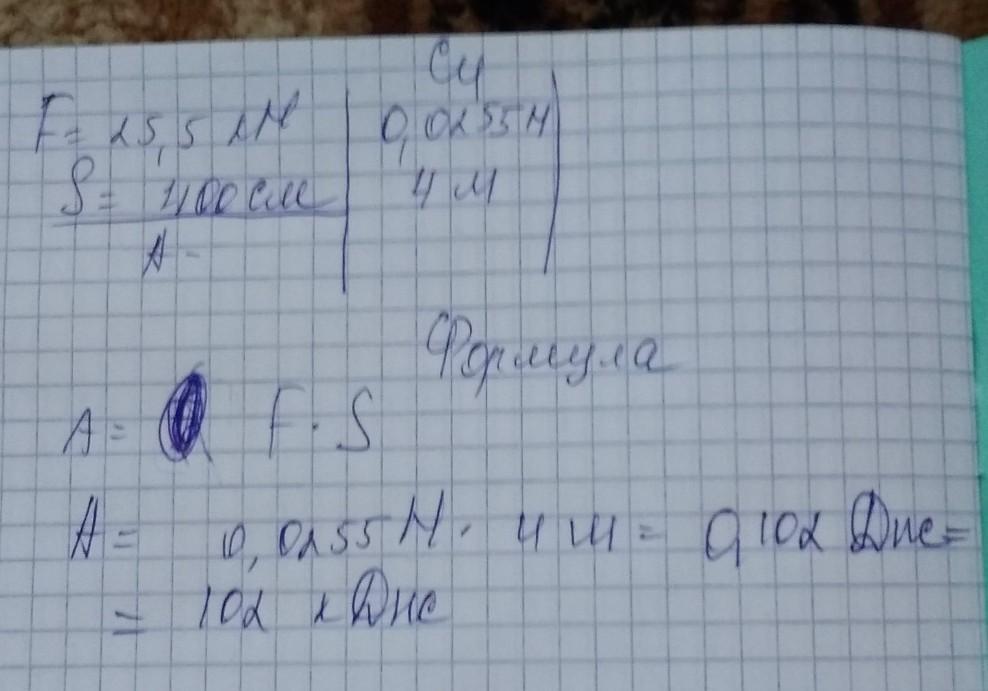 Си
F = 25,5 кН 0,0255 Н
S = 400 см 4 м
A -
Формула
A = F · S
A = 0,0255 Н · 4 м = 0,102 Дж =
= 102 кДж